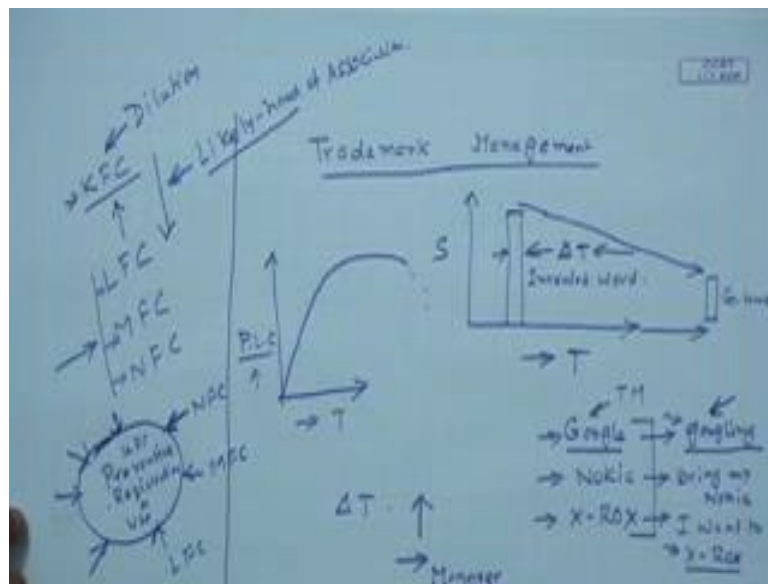 Dilution
Likely-hood of Association
KFC
LFC
MFC
NFC
NFC
MFC
LFC
Preventive
Registration
Trademark Management
PLC
T
S
ΔT
Invented word
T
TM
Google
googling
Nokia
bring my
Nokia
X-ROX
I want to
X-ROX
ΔT
Manager